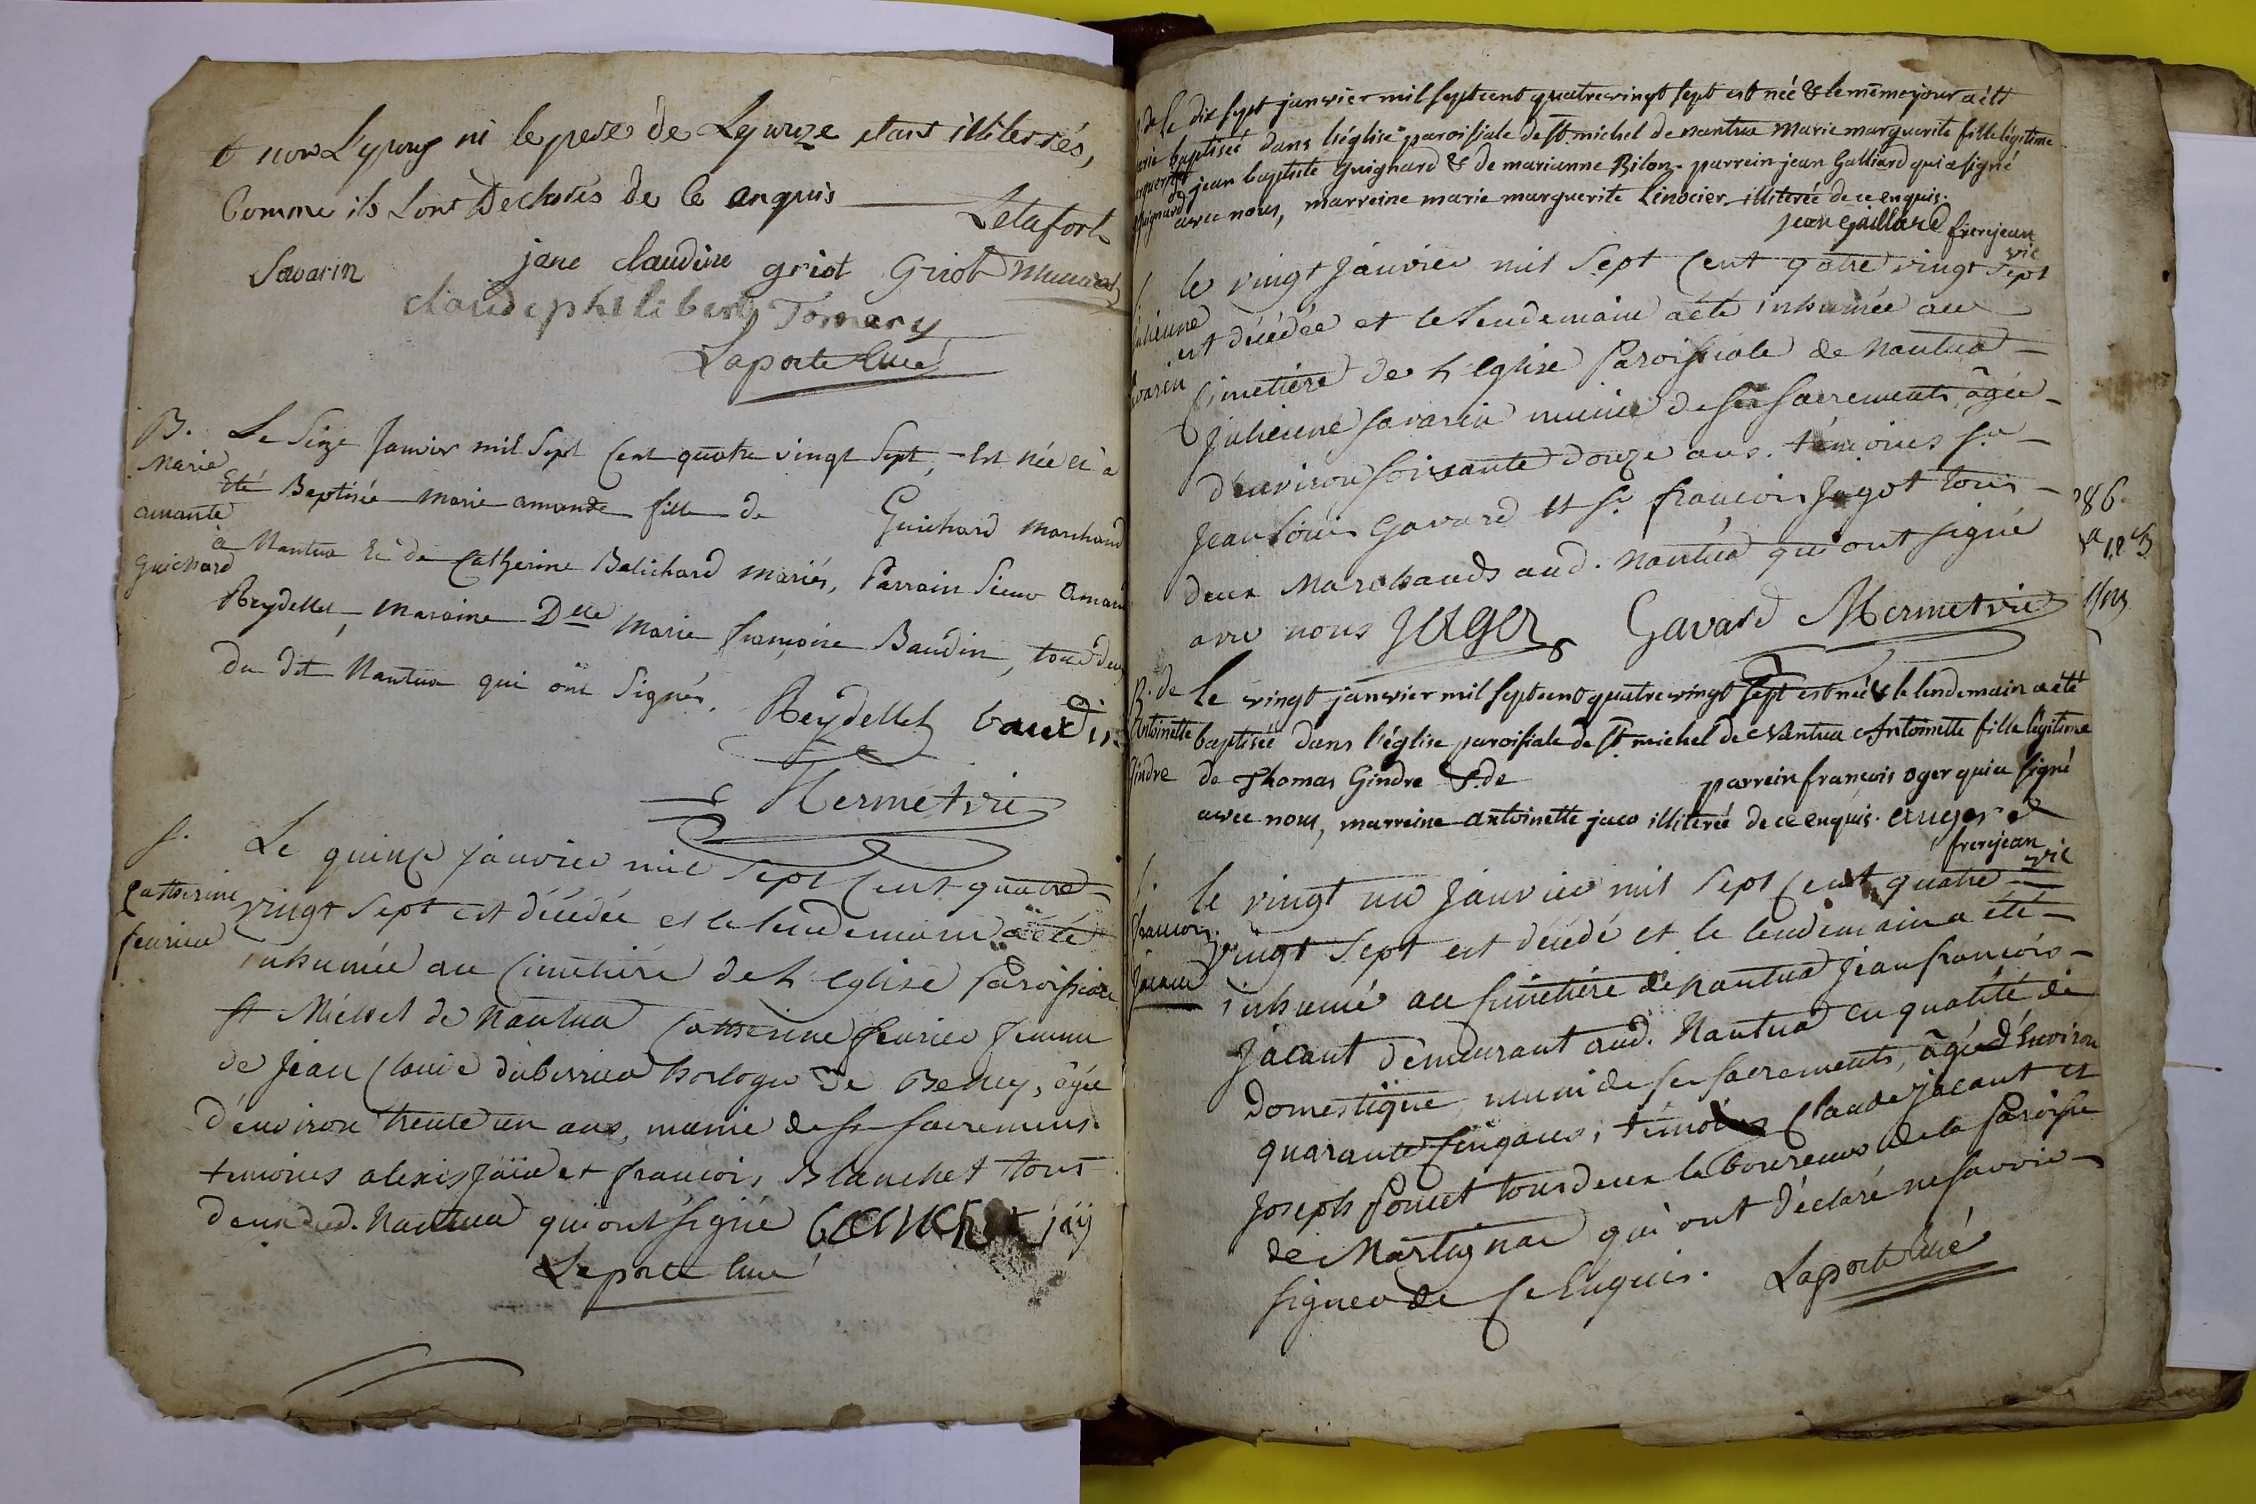 et non L'epouy ni le pere de Lepouze etant illiterés,
Comme ils Lont Declarés de Ce enquis
Letafort
Savarin jane claudine griot Griot
claude philibert Tornery
Laporte Curé
B. Marie amante Guichard
Le Seize Janvier mil Sept Cent quatre vingt Sept, Est née et a
Eté Baptisée Marie amande fille de Guichard Marchand
à Nantua et de Catherine Balichard mariés, Parrain Sieur Amand
Reydellet, Maraine Dlle Marie françoise Baudin, tous deux
du dit Nantua qui ont Signés.
Reydellet baudin
Mermet vic
S. Catherine fevrier
Le quinze janvier mil Sept Cent quatre
vingt Sept est décédée et le lendemain a été
inhumée au Cimetière de L'Eglise Paroissiale
St Michel de Nantua Catherine fevrier femme
de Jean Claude duborrier horloger de Belley, âgée
d'environ trente un ans, munie de ses sacremens.
temoins alexis Jaïa et francois Blanchet tous
deux dud. Nantua qui ont signé blanchet jaÿ
Laporte Curé
B. de Marie Marguerite Guignard
le dix sept janvier mil sept cent quatre vingt sept est née & le même jour a été
baptisée dans l'église paroissiale de St. michel de nantua Marie marguerite fille légitime
de jean baptiste Guignard & de marianne Bilon. parrein jean Galliard qui a signé
avec nous, marreine marie marguerite Linocier illiterée de ce enquis.
jean gaillard frerejean
vic
S. Julienne Savarin
le vingt Janvier mil Sept Cent qatre vingt Sept
est décédée et le lendemain a été inhumée au
Cimetière de L'Eglise Paroissiale de Nantua
Julienne Savarin munie de ses Sacrements, âgée
d'environ soixante douze ans. témoins sr.
Jean Louis Gavard et sr. francois Jagot tous
deux Marchands aud. Nantua qui ont signé
avec nous JAGOT Gavard Mermet vic
B. de Antoinette Gindre
le vingt janvier mil sept cent quatre vingt sept est née & le lendemain a été
baptisée dans l'église paroissiale de St michel de Nantua Antoinette fille légitime
de Thomas Gindre & de parrein françois oger qui a signé
avec nous, marreine antoinette jaco illiterée de ce enquis. auger
frerejean
vic
S. francois Jacant
le vingt un Janvier mil Sept Cent quatre
vingt Sept est décédé et le lendemain a été
inhumé au Cimetière de Nantua Jean francois
Jacant demeurant aud. Nantua en qualité de
Domestique, muni de ses sacrements, âgé d'Environ
quarante cinq ans, témoins Claude jacant et
Joseph Poncet tous deux laboureurs de la Paroisse
de Martignac qui ont déclaré ne savoir
signer de Ce Enquis. Laporte Curé